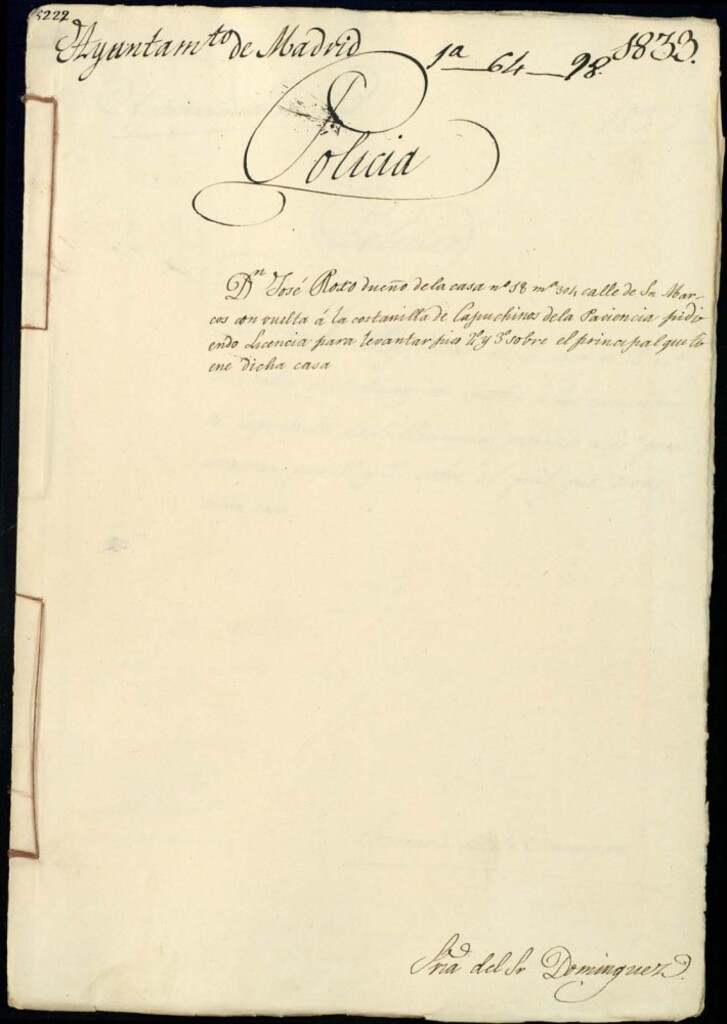 5222
Ayuntamto de Madrid 1a 64 98. 1833.
Policia
Dn José Roxo dueño de la casa no 18 ma 304 calle de Sn. Mar-
cos con vuelta á la costanilla de Capuchinos de la Paciencia pidi
endo Licencia para levantar piso 2o y 3o sobre el principal que ti
ene dicha casa
Sria del Sr Dominguez.